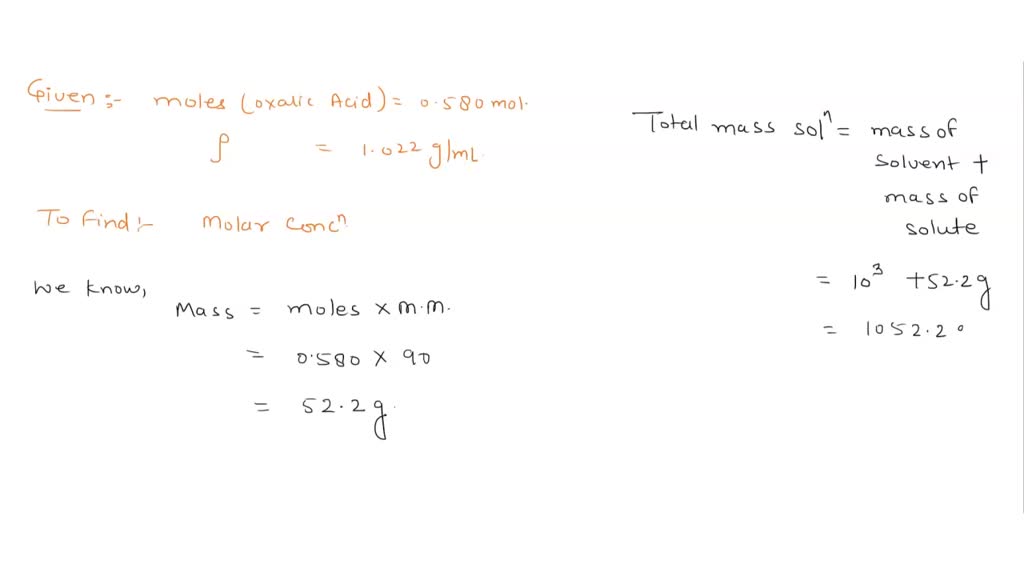 Given :- moles (oxalic Acid) = 0.580 mol.
ρ = 1.022 g/mL.
To Find :- Molar concⁿ
we know,
Mass = moles × m.m.
= 0.580 × 90
= 52.2 g.
Total mass solⁿ = mass of
solvent +
mass of
solute
= 10³ + 52.2 g
= 1052.2